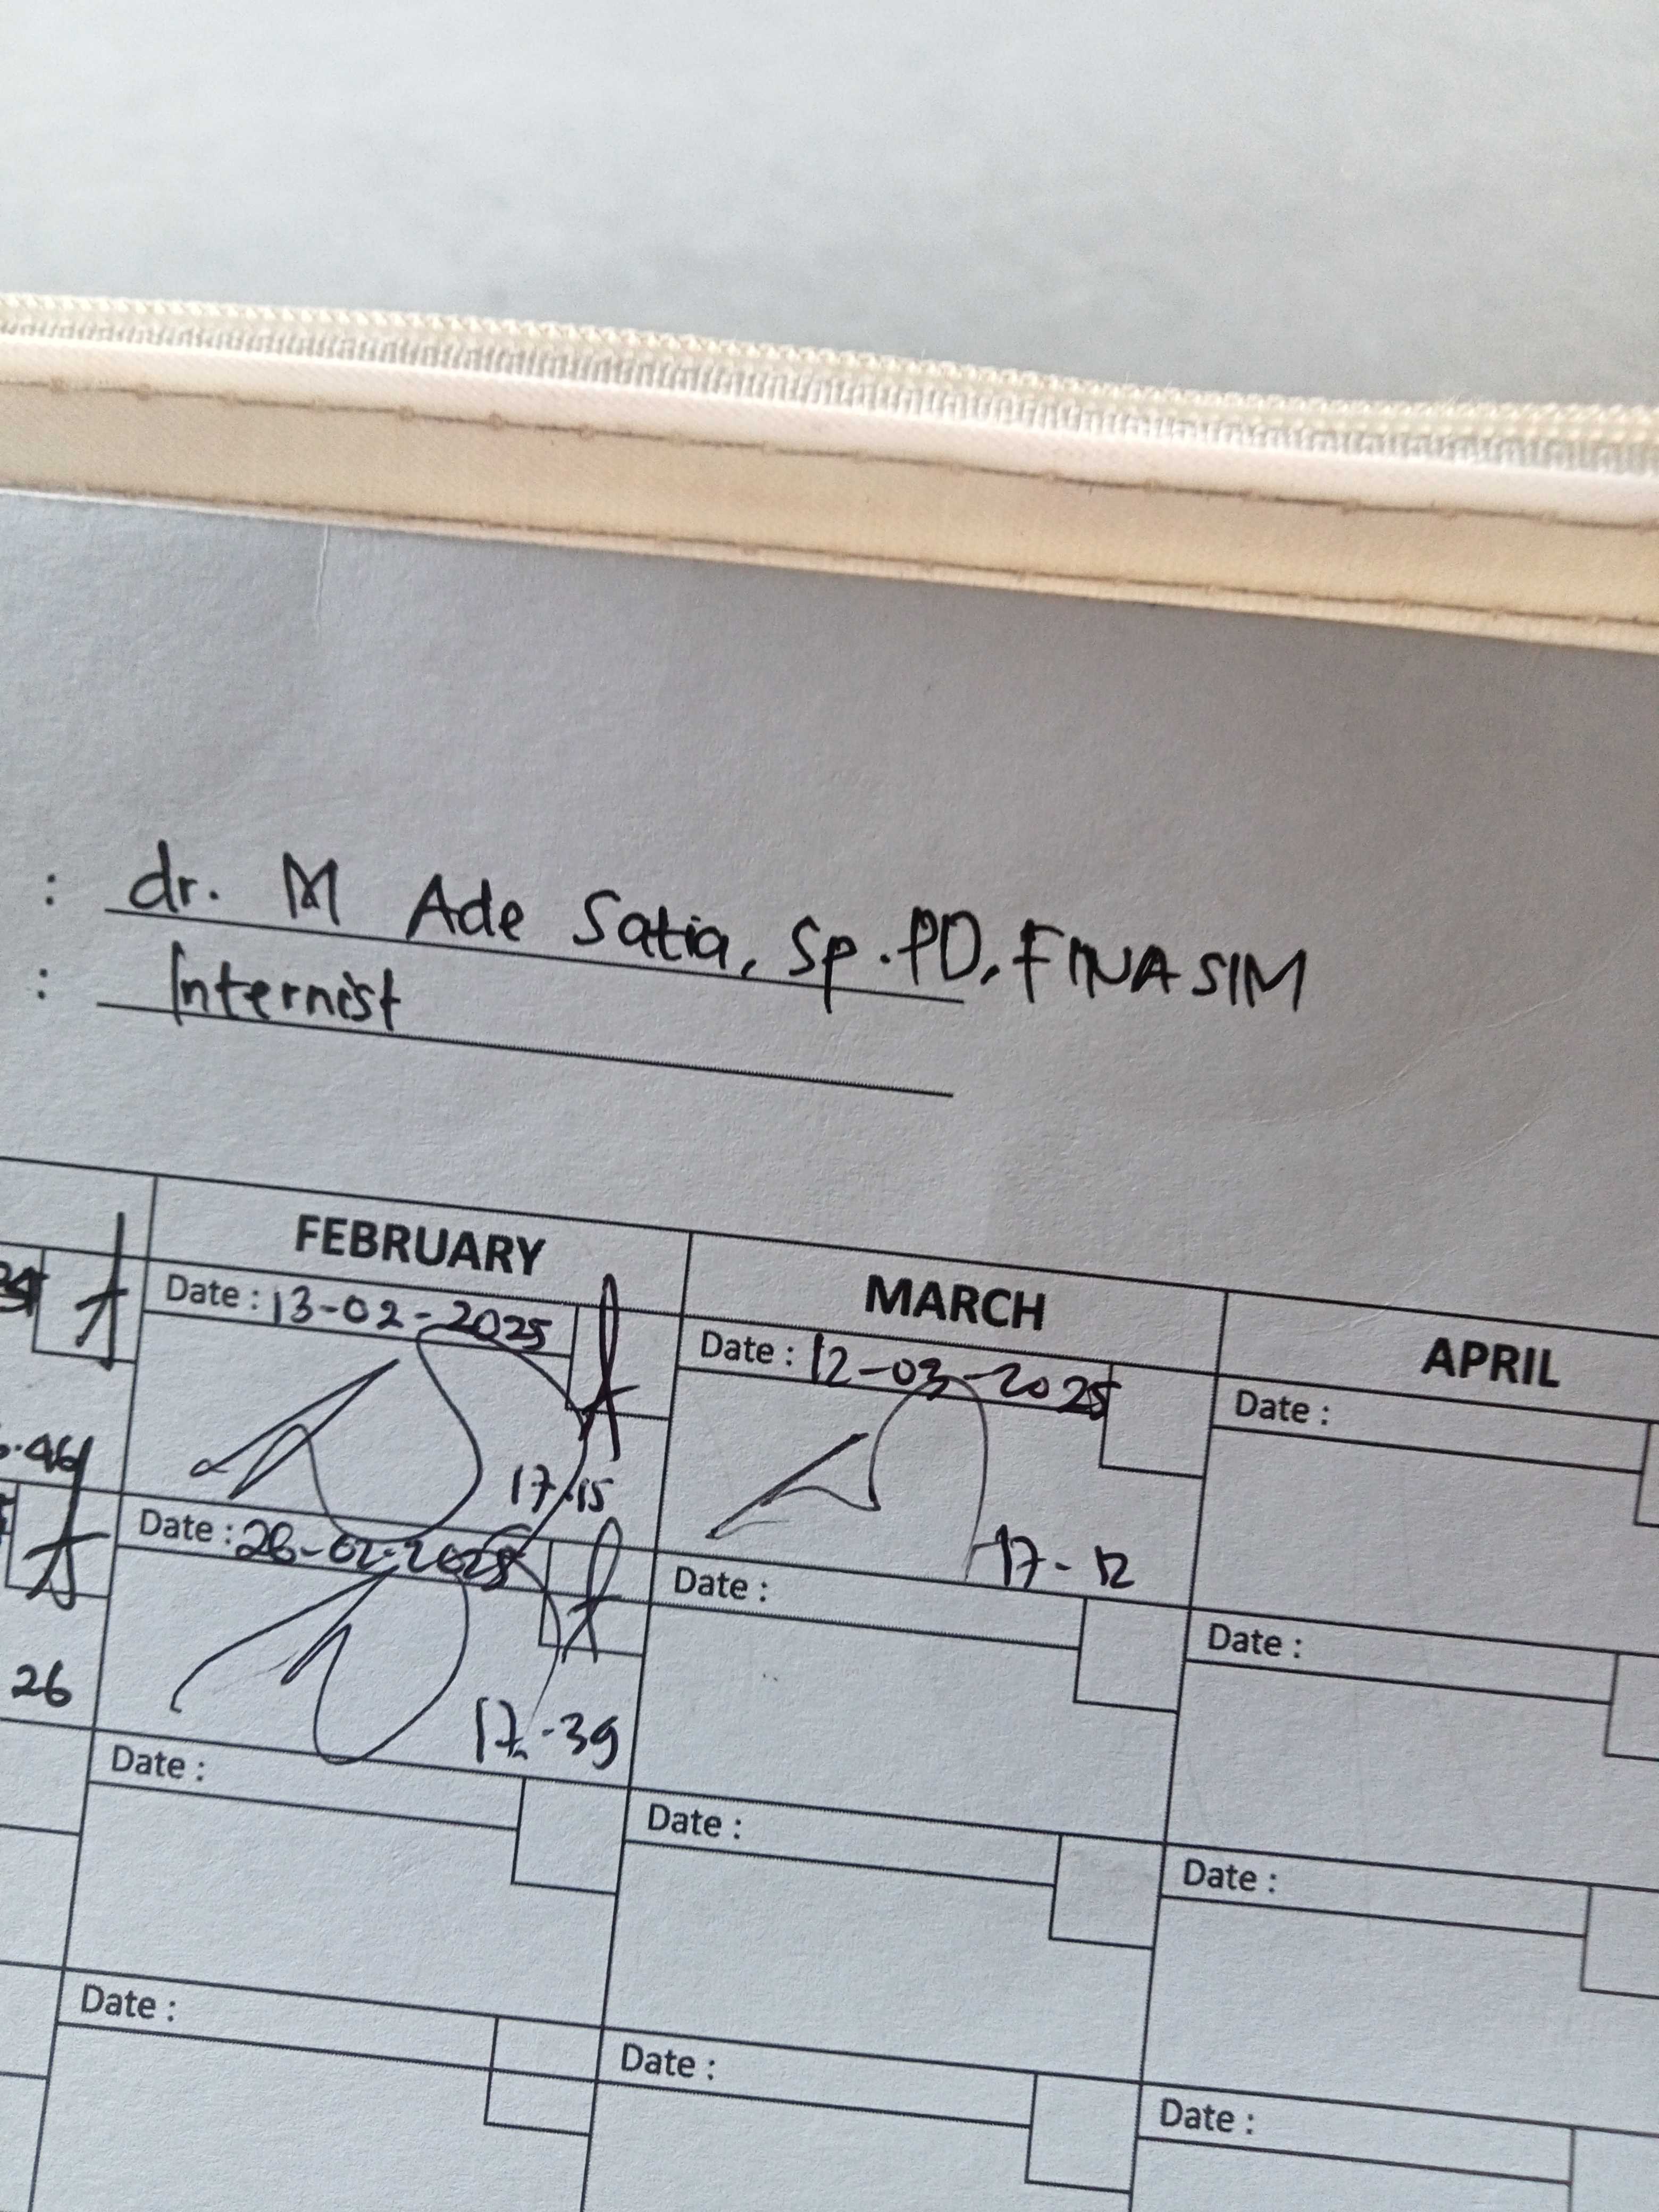 : dr. M Ade Satia, Sp.PD, FINASIM
: Internist
FEBRUARY
MARCH
APRIL
Date : 13-02-2025
Date : 12-03-2025
Date :
17.15
17-12
Date : 26-02-2025
Date :
Date :
26
17.-39
Date :
Date :
Date :
Date :
Date :
Date :